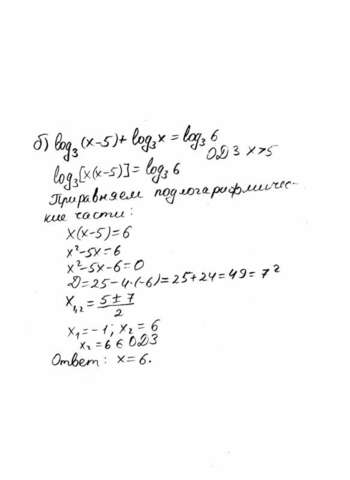 б) log₃(x-5)+log₃x=log₃6
ОДЗ x>5
log₃[x(x-5)]=log₃6
Приравняем подлогарифмичес-
кие части:
x(x-5)=6
x²-5x=6
x²-5x-6=0
D=25-4·(-6)=25+24=49=7²
x₁,₂=(5±7)/2
x₁=-1; x₂=6
x₂=6 ∈ ОДЗ
Ответ: x=6.